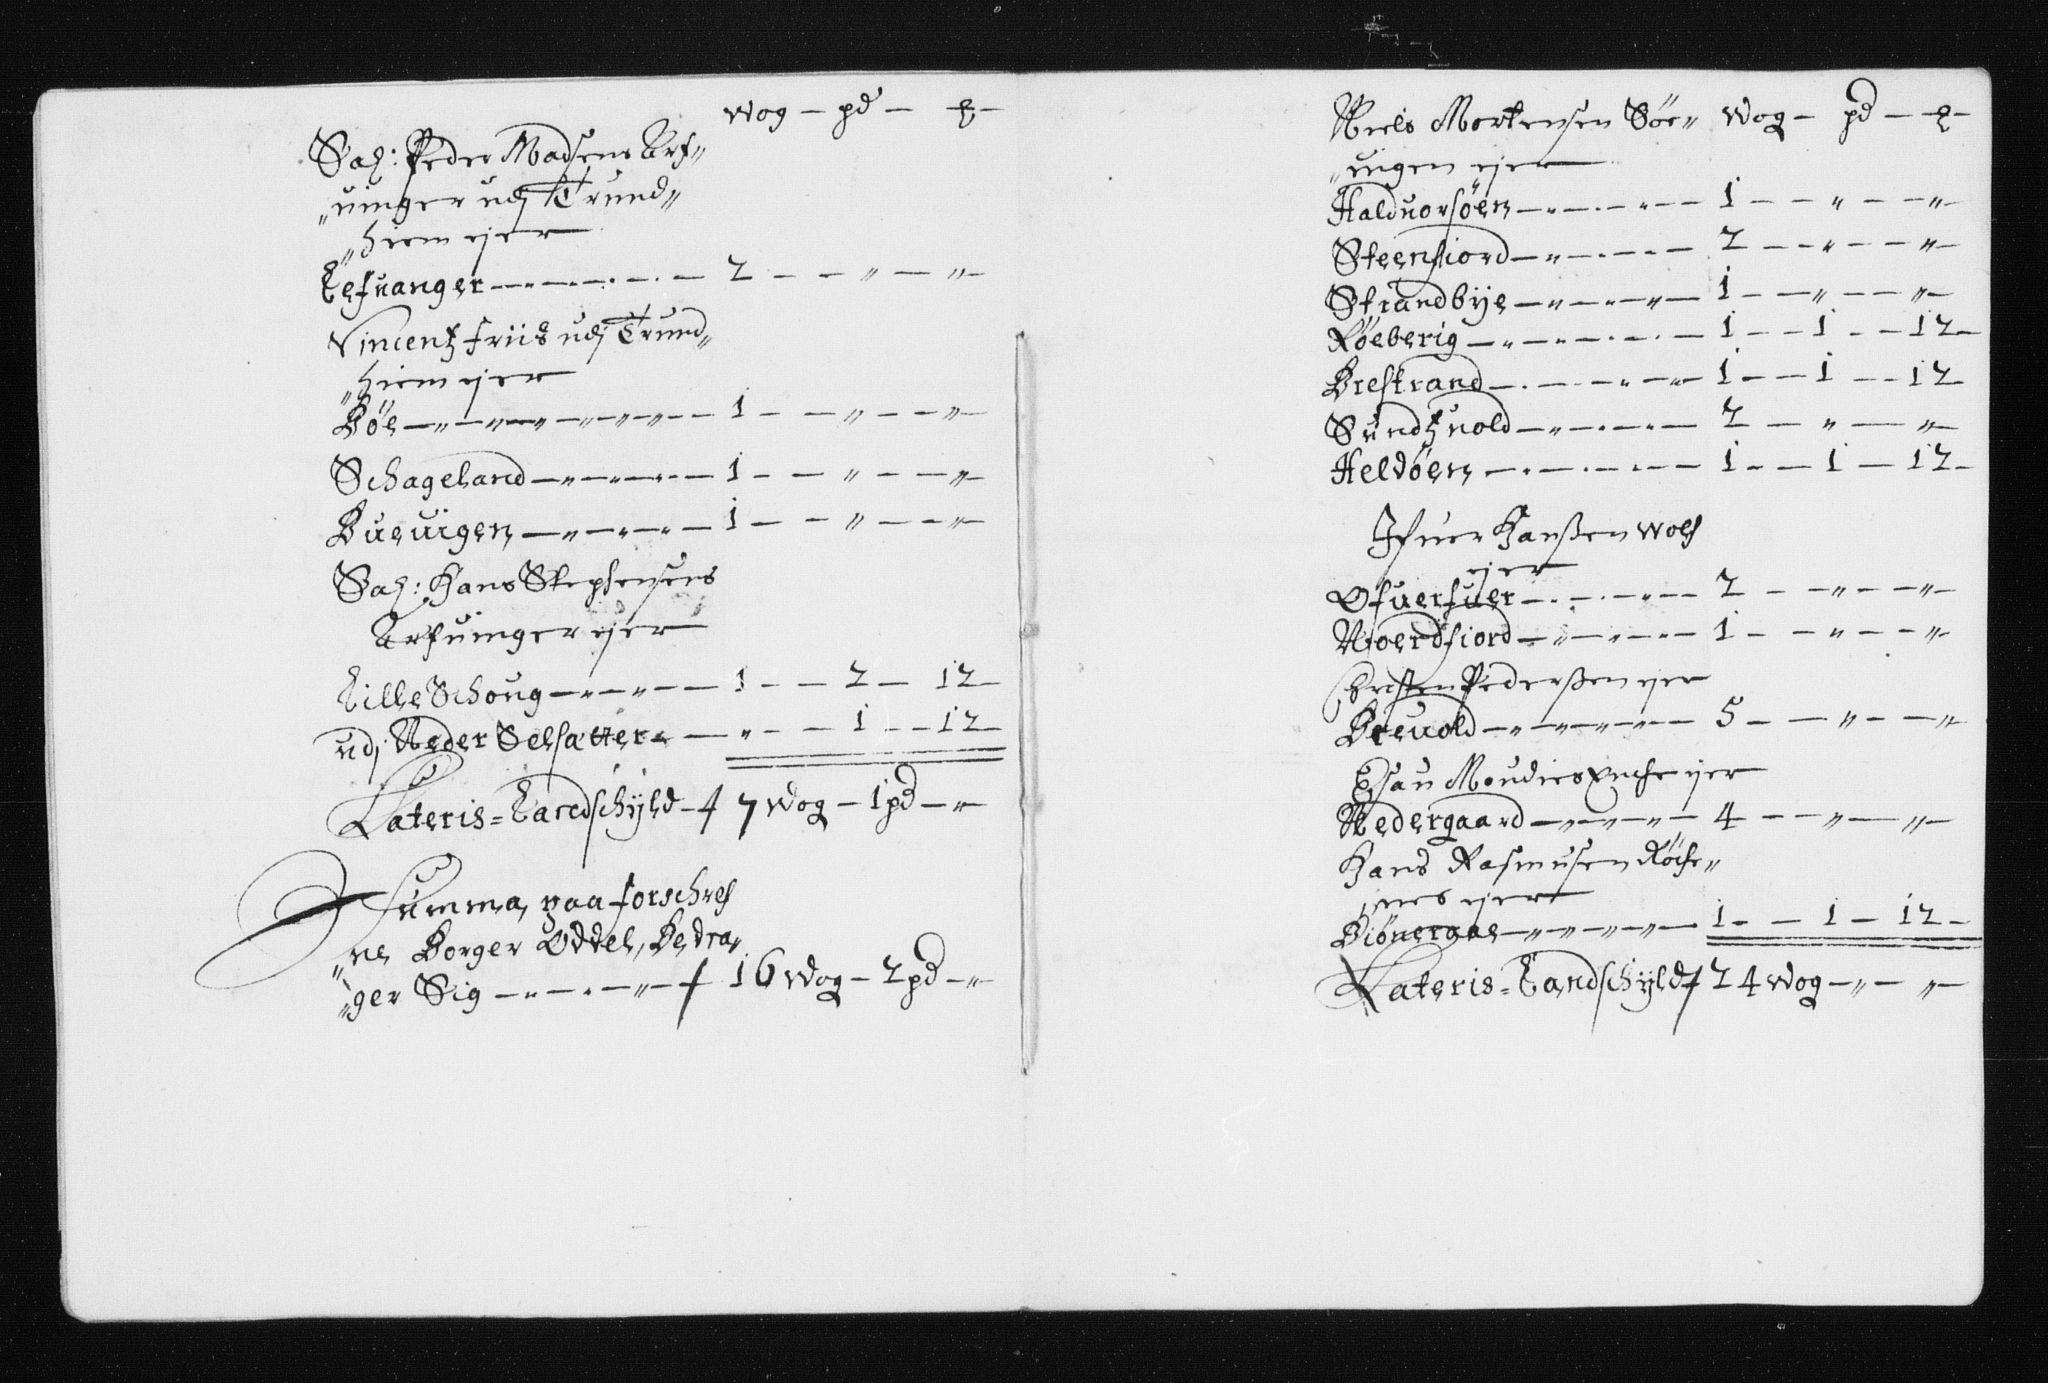 Wog – pd – ℔ –
Sal: Peder Madsens Arf„
„uinger udj Trund„
„hiem ejer
Lefuanger – 2 – „ – „
Vincentz friis udj Trund„
„hiem ejer
Böe – 1 – „ – „
Schageland – 1 – „ – „
Bueuigen – 1 – „ – „
Sal: Hans Stephensens
Arfuinger ejer
Lille Schoug – 1 – 2 – 12 –
udj Neder Selsætter – „ – 1 – 12 –
Lateris = Landschÿld – 7 Wog – 1 pd – „
Summa, paa forschref
„ne Borger Oddel, Bedra„
„ger Sig – 16 Wog – 2 pd – „
Niels Mortensen Söe„ Wog – pd – ℔ –
„engen ejer
Halduorsöen – 1 – „ – „
Steenfiord – 2 – „ – „
Strandbÿe – 1 – „ – „
Röeberig – 1 – 1 – 12 –
Brestrand – 1 – 1 – 12
Sundtzuold – 2 – „ – „
Heldöen – 1 – 1 – 12 –
Ifuer Hanßen Wolf
ejer
Ofuerfuer – 2 – „ – „
Noerdfiord – 1 – „ – „
Christen Pederßen ejer
Breuold – 5 – „ – „
Esau Moudies ejer
Nedergaard – 4 – „ – „
Hans Rasmusen Röche„
„nes ejer
Biönergae – 1 – 1 – 12 –
Lateris = Landschÿld 24 Wog – „ – „